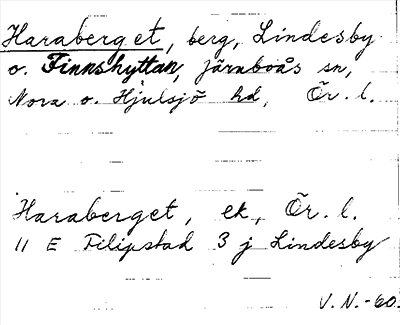 Haraberget, berg, Lindesby
o. Finnshyttan, Järnboås sn,
Nora o. Hjulsjö hd, Ör. l.
Haraberget, ek, Ör. l.
11 E Filipstad 3 j Lindesby
V. N. -60.